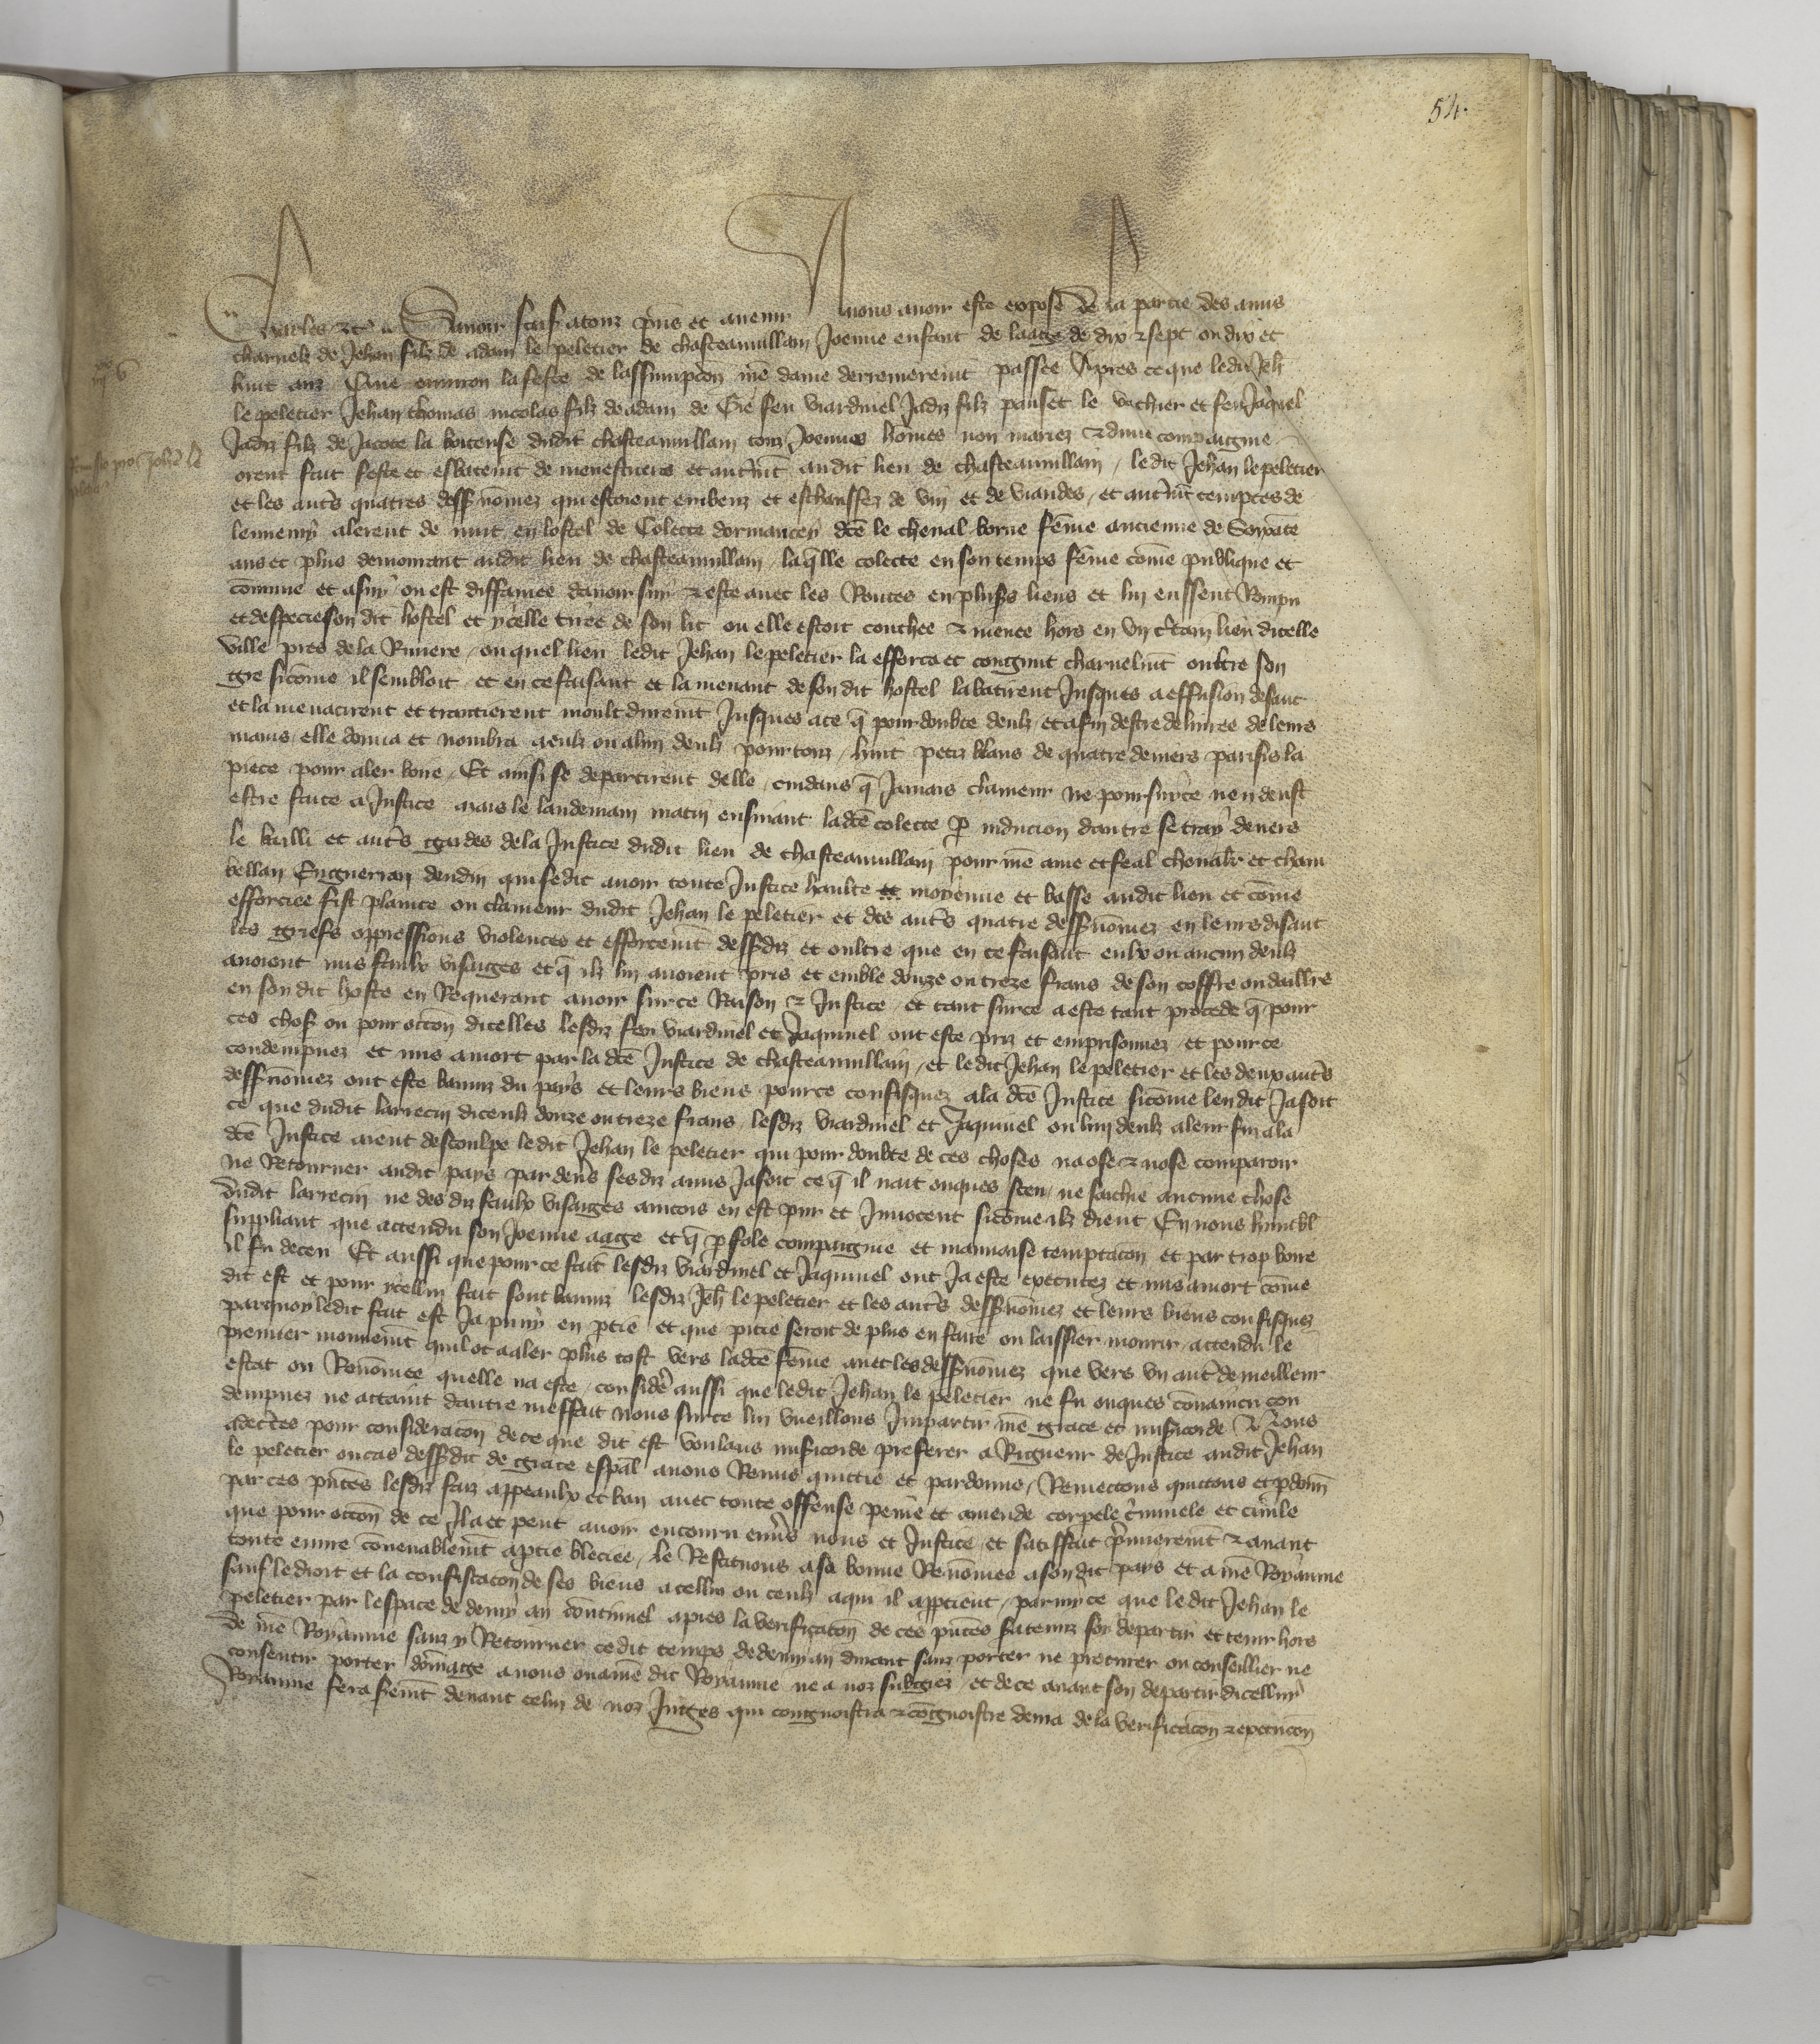 54.
Charles etc. Savoir faisons a touz p̃ns et avenir Nous avoir este expose de la partie des amis
charnelz de Jehan filz de adam le peletier de chasteauvillain Joenne enfant de laage de dix et sept ou dix et
huit anz Que environ la feste de lassumpcōn nr̄e dame derrenierem̄t passee Apres ce que ledit Jeh̄
le peletier Jehan thomas nicolas filz de adam de Gie feu viardinel Jadiz filz pauset le vachier et feu Jaq̄nel
Jadiz filz de Jacote la boiteuse dudit chasteauvillain touz Joennes hōmes non mariez et dune compaignie
orent fait feste et esbatem̄t de menestriers et autrem̄t audit lieu de chasteauvillain / ledit Jehan le peletier
et les autr̄s quatres dessusnōmez qui estoient embeuz et eschauffez de vin et de viandes / et autrem̄t temptes de
lennemy alerent de nuit en lostel de Colecte dormancey dc̄e le cheval borne fēme ancienne de Soixāte
ans et plus demourant audit lieu de chasteauvillain / laq̄lle colecte en son temps fēme cōme publique et
cōmune et ainsi ou est diffamee davoir suy et este avec les Routes en plus̄s lieux et lui eussent Rompu
et despecie son dit hostel et ycelle tiree de son lit ou elle estoit couchee et menee hors en un c̄tain lieu dicelle
ville pres de la Riviere / ou quel lieu ledit Jehan le peletier la efforca et congnut charnelm̄t oultre son
gre sicōme il sembloit / et en ce faisant et la menant de son dit hostel la batirent Jusques a effusion de sanc
et la menacirent et traictierent moult durem̄t Jusques a ce q̄ pour doubte deulz / et afin destre delivree de leurs
mains / elle donna et nombra a eulz ou a lun deulz pour touz / huit petiz blans de quatre deniers parisis la
piece pour aler boire / Et ainsi se departirent delle / cuidans q̄ Jamais clameur ne poursuite nen deust
estre faite a Justice mais le landemain matin ensuivant ladc̄e colecte p̄ induction dautre se tray devers
le bailli et autr̄s gardes de la Justice dudit lieu de chasteauvillain pour nr̄e ame et feal chevalr̄ et cham
bellan Enguerran deudin qui se dit avoir toute Justice haulte et moyenne et basse audit lieu et cōme
efforciee fist plainte ou clameur dudit Jehan le peletier et des autr̄s quatre dessusnōmez en leur disant
les griefs oppressions violences et efforcem̄t dessusdiz et oultre que en ce faisant eulx ou aucun deulz
avoient mis faulx visaiges et q̄ ilz lui avoient pris et emble douze ou treze frans de son coffre ou dailleurs
en son dit hoste en Requerant avoir sur ce Raison et Justice / et tant sur ce a este tant procede q̄ pour
ces choses ou pour occōn dicelles lesdiz feu viardinel et Jaquinel ont este priz et emprisonnez / et pour ce
condempnez et mis a mort par la dc̄e Justice de chasteauvillain / et ledit Jehan le peletier et les deux autr̄s
dessusnōmez ont este banniz du pays et leurs biens pour ce confisquez a la dc̄e Justice sicōme len dit Jasoit
ce que dudit larrecin diceulz douze ou treze frans / lesdiz viardinel et Jaquinel ou lun deulz a leur fin a la
dc̄e Justice aient descoulpe ledit Jehan le peletier qui pour doubte de ces choses na ose et nose comparoir
ne Retourner audit pays par devers sesdiz amis Jasoit ce q̄ il nait onques sceu / ne saichie aucune chose
dudit larrecin ne des diz faulx visaiges aincois en est pur et Innocent sicōme ilz dient En nous humbl̄
suppliant que attendu son Joenne aage et q̄ p̄ fole compaignie et mauvaise temptacōn et par trop boire
il fu deceu Et aussi que pour ce fait lesdiz viardinel et Jaquinel ont Ja este executez et mis a mort cōme
dit est et pour ycellui fait sont banniz lesdiz Jeh̄ le peletier et les autr̄s dessusnōmez et leurs biens confisquez
parmoy ledit fait est Ja puny en p̄tie et que pitie seroit de plus en faire ou laissier mourir / attendu le
premier mouvem̄t quil ot a aler plus tost vers ladc̄e fēme avec les dessusnōmez que vers un autr̄ de meilleur
estat ou Renōmee quelle na este / considere aussi que ledit Jehan le peletier ne fu onques cōvaincu con
dempnez ne attaint dautre meffait Nous sur ce lui vueillons Impartir nr̄e grace et mis̄icorde Nous
adecertes pour consideracōn de ce que dit est voulans mis̄icorde preferer a Rigueur de Justice audit Jehan
le peletier ou cas dessusdit de grace esp̄al avons Remis quictie et pardonne / Remectons quictons et p̄donn̄
par ces pn̄tes lesdiz faiz appeaulx et ban avec toute offense peine et amende corpele c̄minele et civile
que pour occōn de ce Il a et peut avoir encouru env̄s nous et Justice / et satisfait p̄mierem̄t et avant
toute euvre cōvenablem̄t a p̄tie bleciee / le Restituons a sa bonne Renōmee a son dit pays et a nr̄e Royaume
sauf le droit et la confiscacōn de ses biens a cellui ou ceulz a qui il app̄tient / parmy ce que ledit Jehan le
peletier par lespace de demy an cōtinuel apres la verificacōn de ces pn̄tes sera tenuz soy departir et tenir hors
de nr̄e Royaume sanz y Retourner cedit temps de demy an durant sanz porter ne procurer ou conseillier ne
consentir porter dōmage a nous ou a nr̄e dit Royaume ne a noz subgiez / et de ce avant son departir dicellui
Royaume fera serem̄t devant celui de noz Juges qui congnoistra et cōgnoistre devra de la verificacōn et execucōn